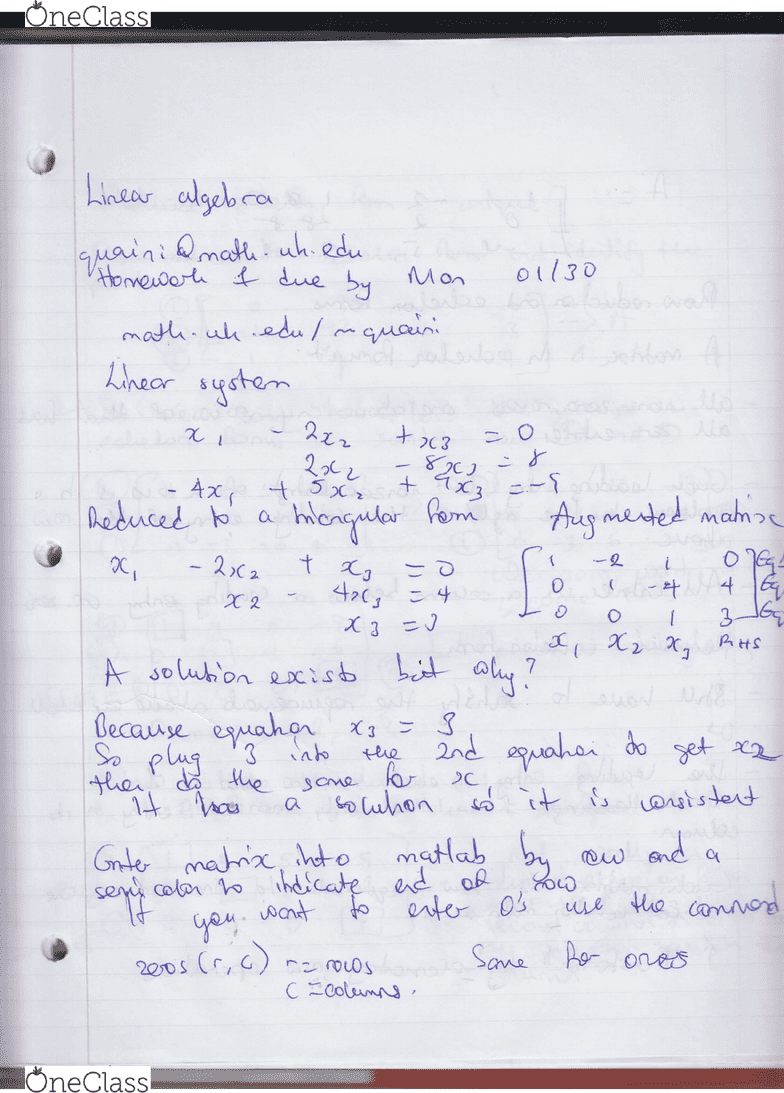 OneClass
Linear algebra
quaini@math.uh.edu
Homework 1 due by Mon 01/30
math.uh.edu/~quaini
Linear system
x₁ - 2x₂ + x₃ = 0
2x₂ - 8x₃ = 8
- 4x₁ + 5x₂ + 9x₃ = -9
Reduced to a triangular form Augmented matrix
x₁ - 2x₂ + x₃ = 0 [ 1 -2 1 0 ] Eq1
x₂ - 4x₃ = 4 0 1 -4 4 Eq
x₃ = 3 0 0 1 3 Eq
x₁ x₂ x₃ RHS
A solution exists but why?
Because equation x₃ = 3
So plug 3 into the 2nd equation to get x2
then do the same for x
It has a solution so it is consistent
Enter matrix into matlab by row and a
semicolon to indicate end of row
If you want to enter 0's use the command
zeros(r, c) r = rows Same for ones
c = columns.
OneClass